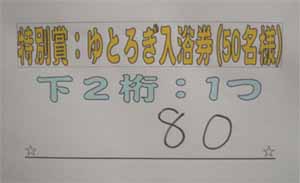 特別賞：ゆとろぎ入浴券(50名様)
下2桁：1つ
80
☆ ☆